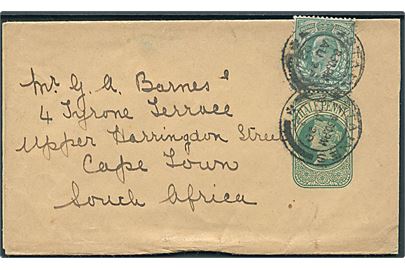 Mr. G. A. Barnes
4 Tyrone Terrace
Upper Harringdon Street
Cape Town
South Africa
HALFPENNY